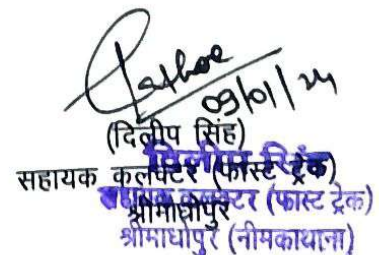 09/01/24
(दिलीप सिंह)
सहायक कलक्टर (फास्ट ट्रेक)
श्रीमाधोपुर
दिलीप सिंह
सहायक कलक्टर (फास्ट ट्रेक)
श्रीमाधोपुर (नीमकाथाना)